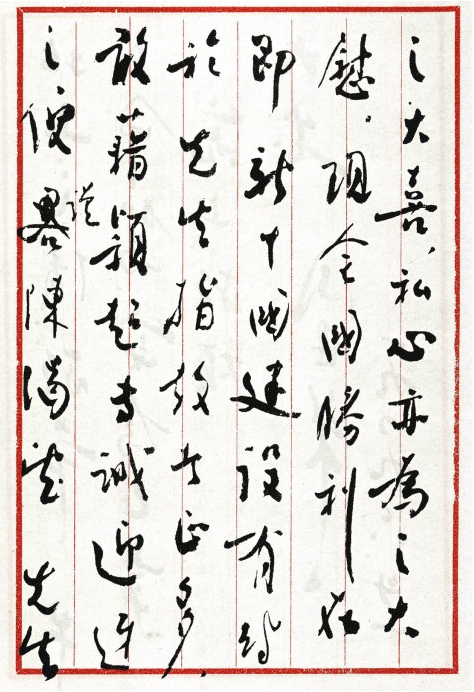 之大喜,私心亦為之大
慰。現全國勝利在
即新中國建設有待
於先生指教者正多,
敢藉穎超專誠迎迓
之便謹畧陳渴望 先生